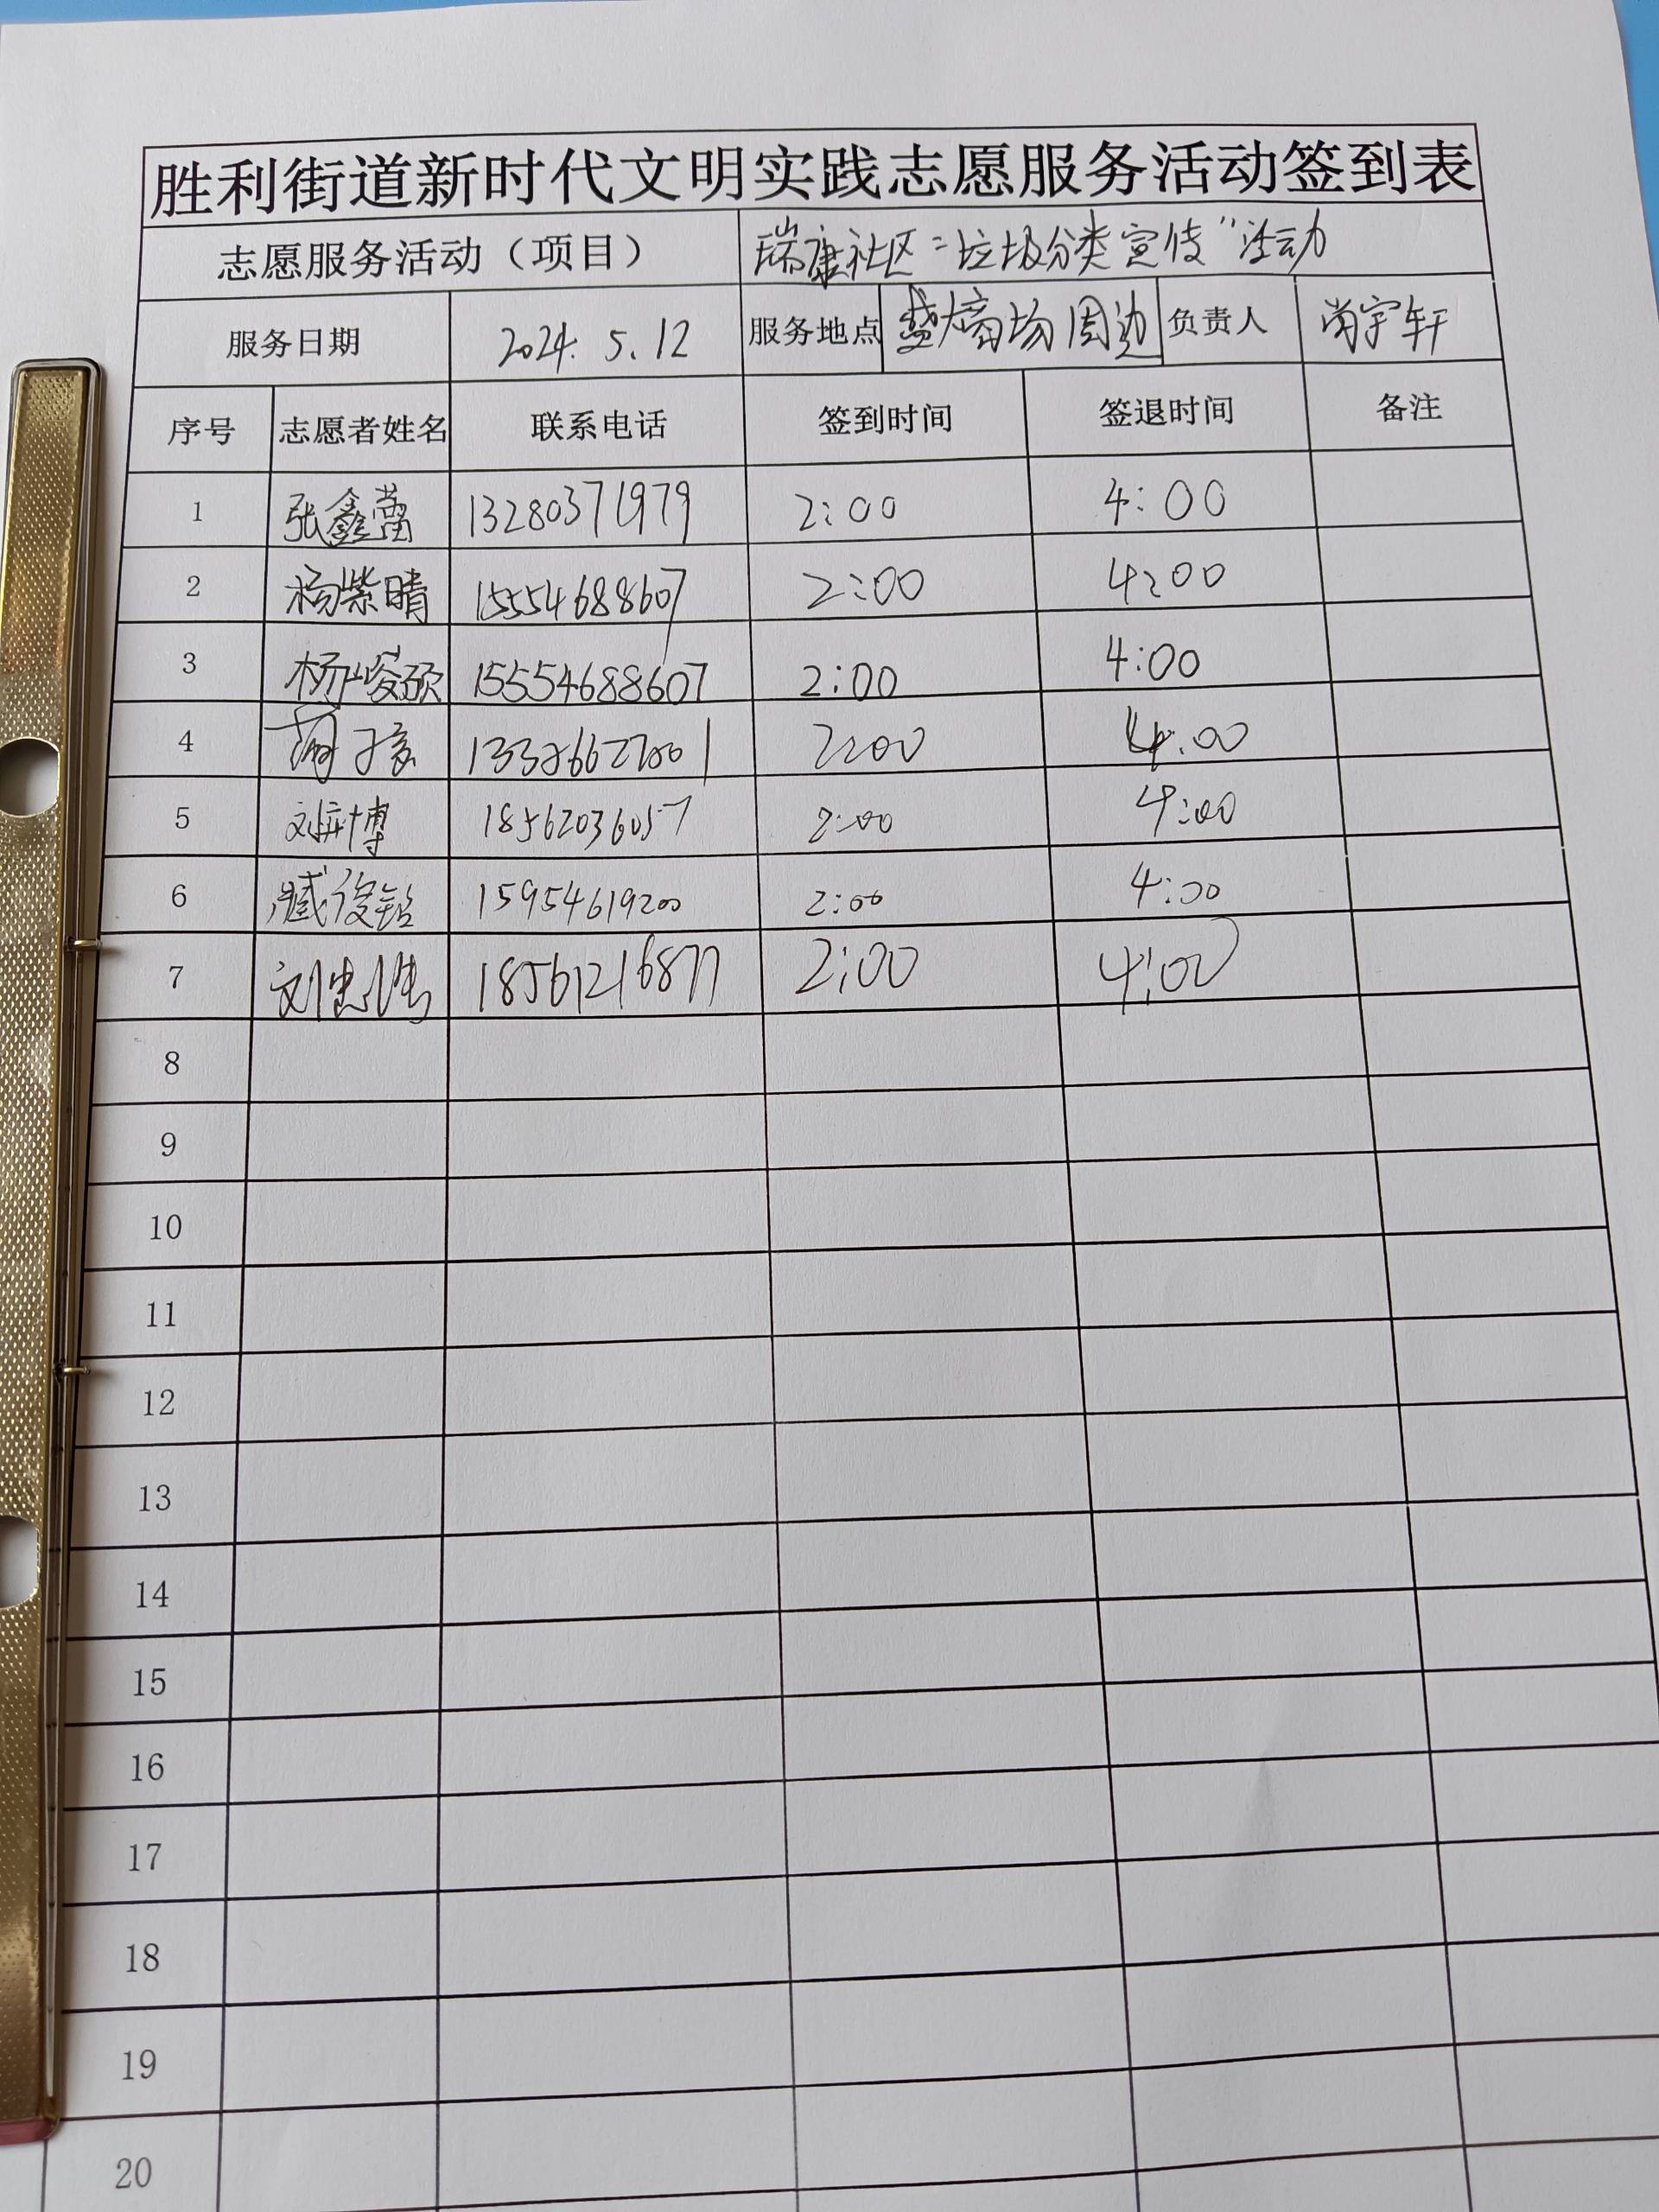 胜利街道新时代文明实践志愿服务活动签到表
志愿服务活动（项目） 瑞康社区“垃圾分类宣传”活动
服务日期 2024. 5. 12 服务地点 盛大商场周边 负责人 尚宇轩
序号 志愿者姓名 联系电话 签到时间 签退时间 备注
1 张鑫蕾 13280371979 2:00 4:00
2 杨紫晴 15554688607 2:00 4:00
3 杨峻硕 15554688607 2:00 4:00
4 2:00 4:00
5 博 18562036057 2:00 4:00
6 臧俊铭 15954619200 2:00 4:00
7 刘忠浩 2:00 4:00
8
9
10
11
12
13
14
15
16
17
18
19
20